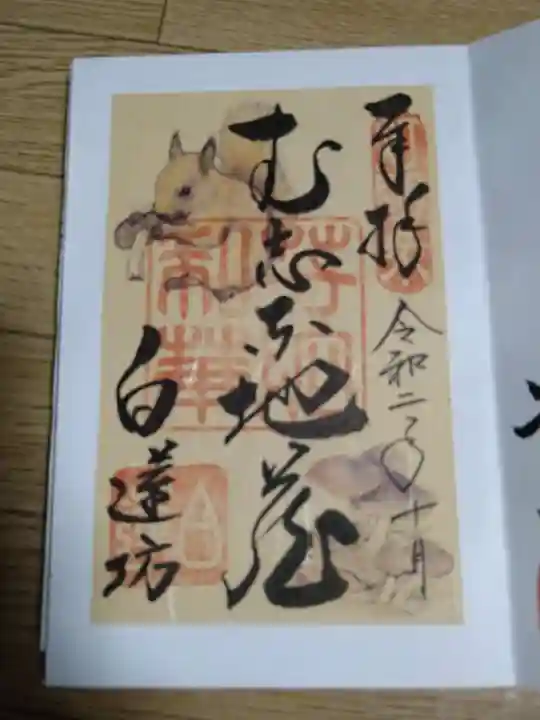 奉拝
令和二年十月
む志な地蔵
白蓮坊